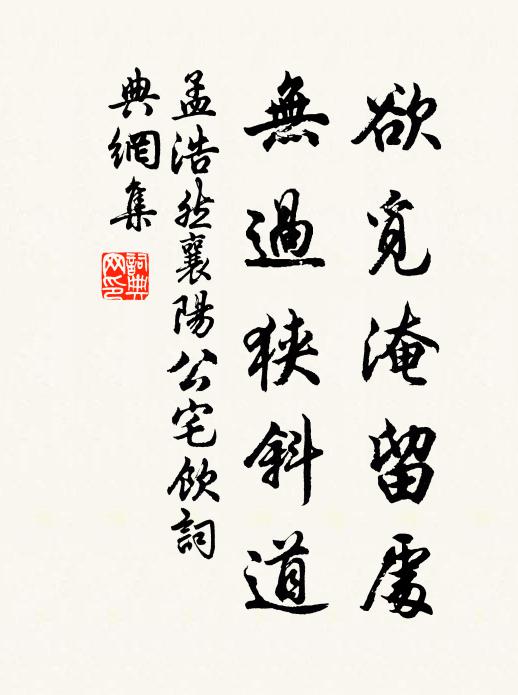 欲覓淹留處
無過狹斜道
孟浩然襄陽公宅飲詞
典網集
詞典网印